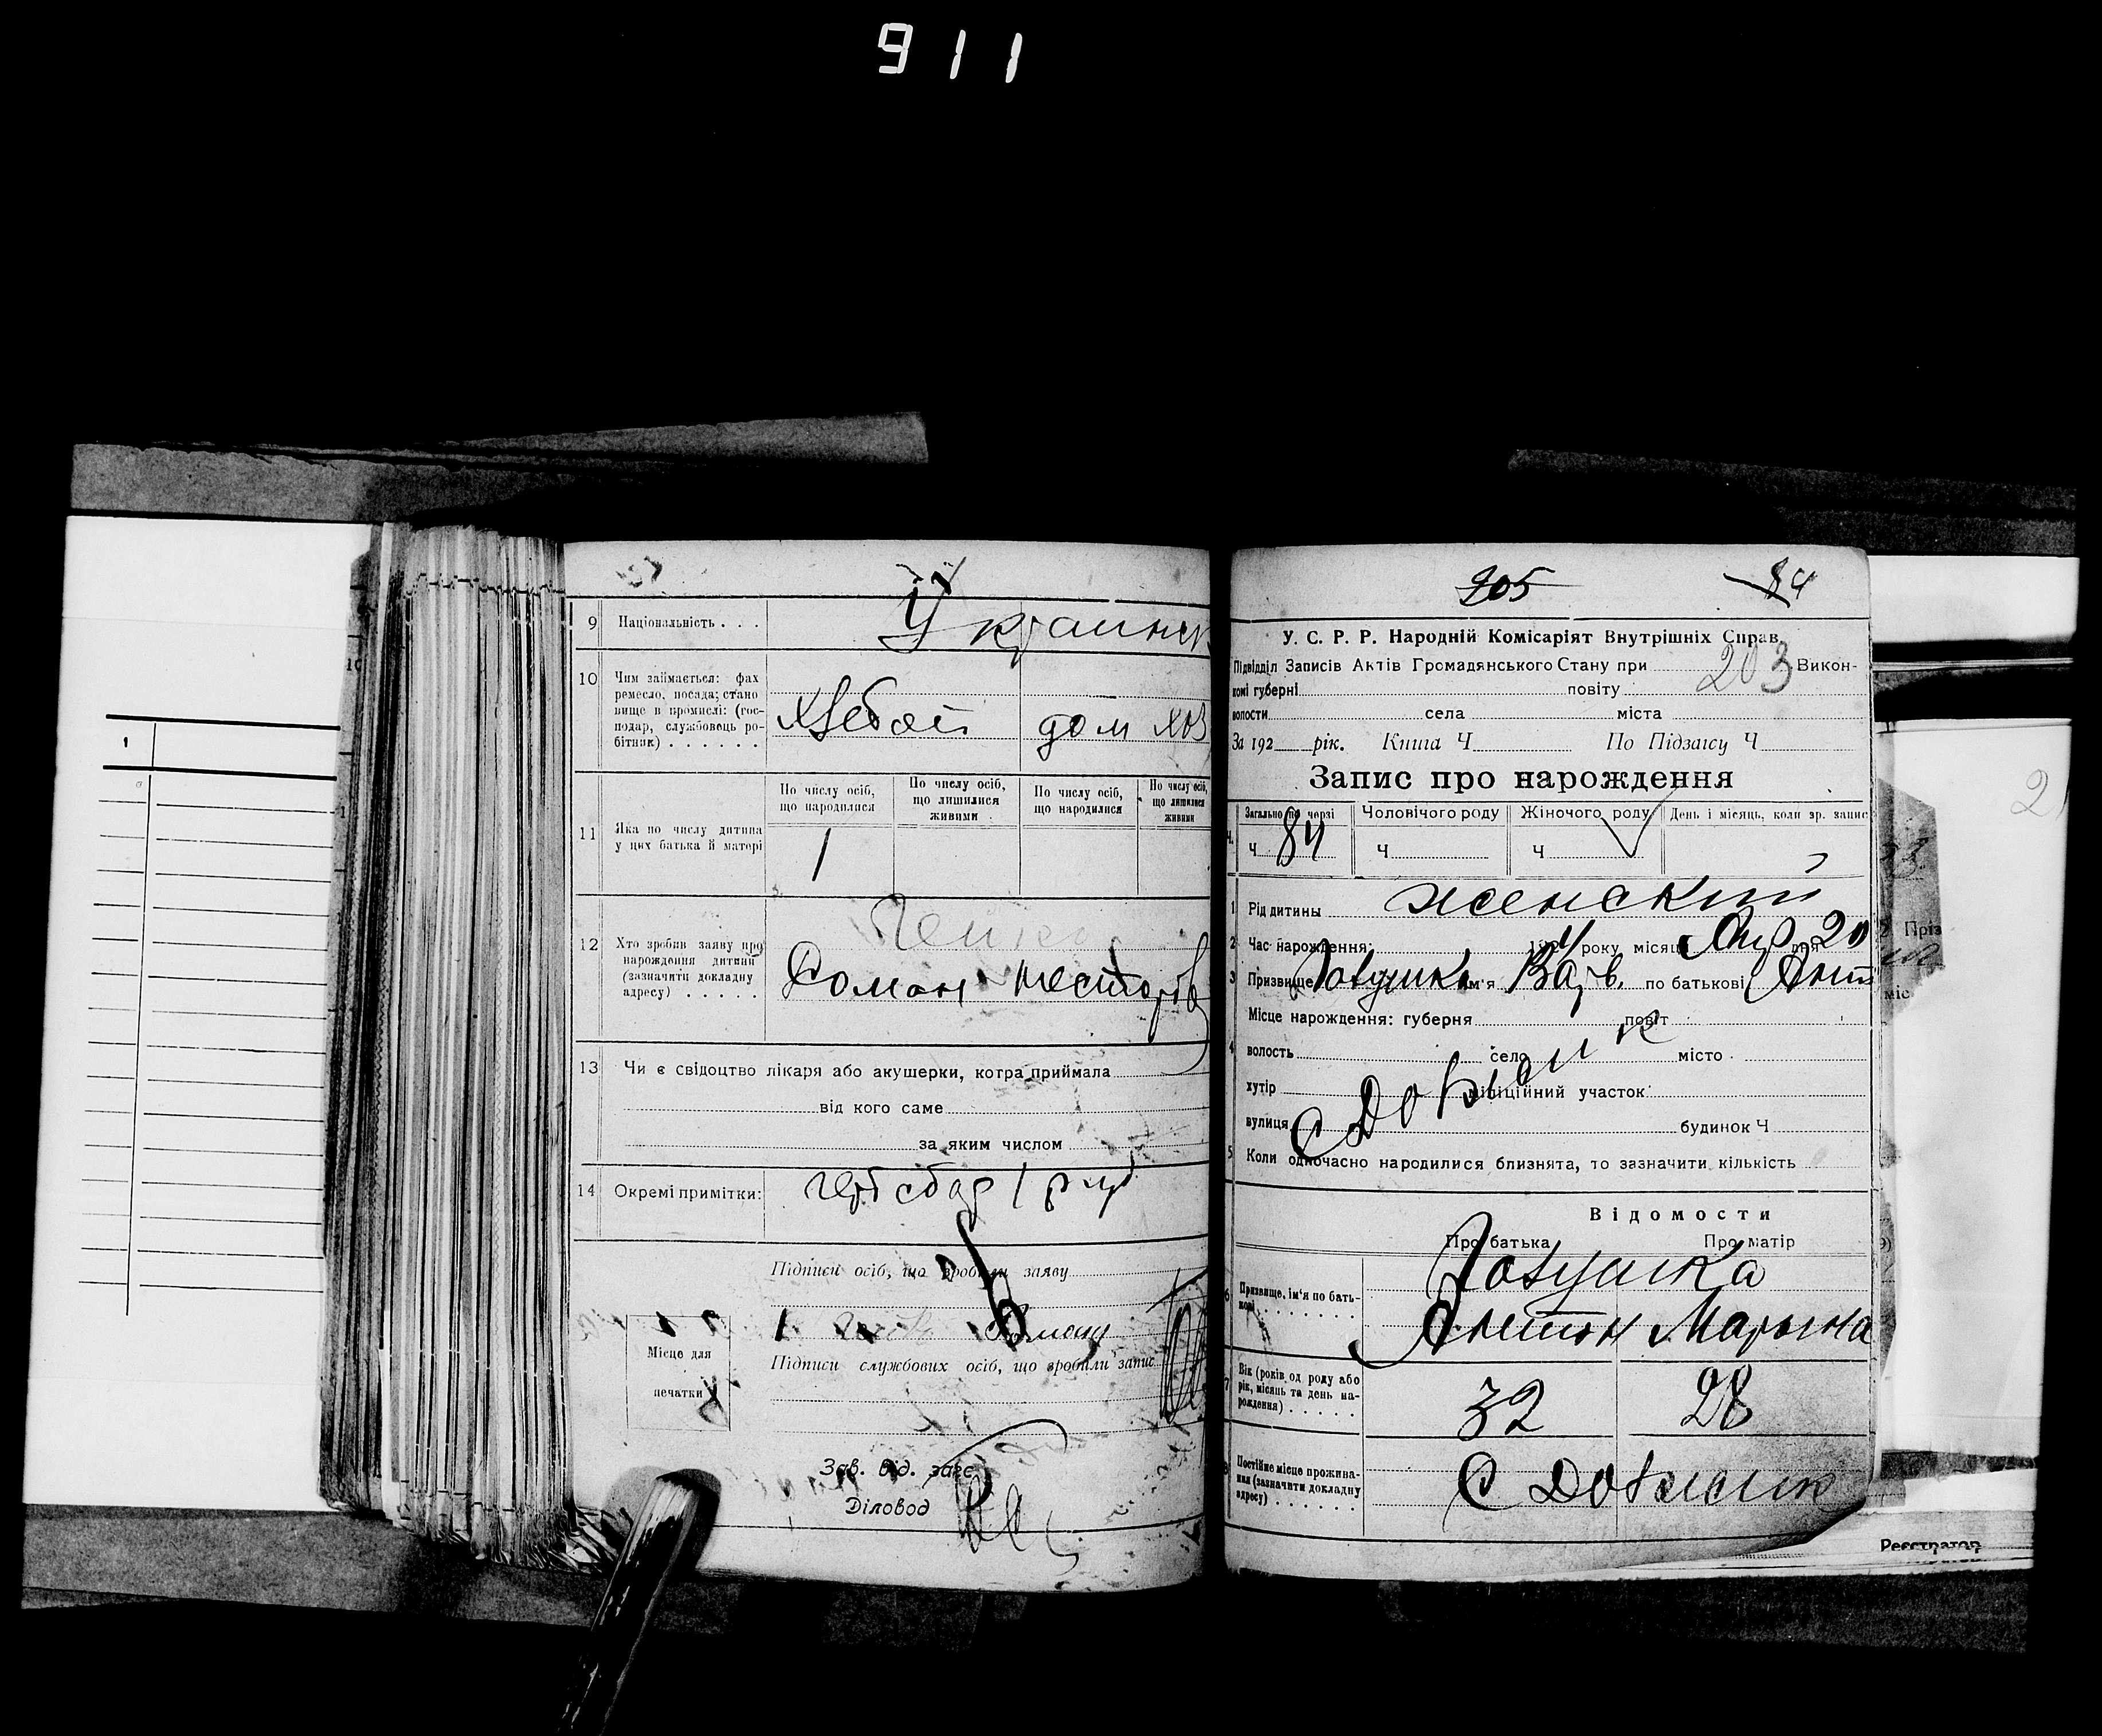 911
9 Національність . . .
Украинск
10 Чим займається: фах
ремесло, посада; стано
вище в промислі: (гос-
подар, службовець ро-
бітник) . . . . . .
хлебоп дом хоз
11 Яка по числу дитина
у цих батька й матері
По числу осіб, що народилися
По числу осіб, що лишилися живими
По числу осіб, що народилися
По числу осіб, що лишилися живими
1
12 Хто зробив заяву про
нарождення дитини
(зазначити докладну
адресу) . . . . .
Роман Несторов
13 Чи є свідоцтво лікаря або акушерки, котра приймала
від кого саме
за яким числом
14 Окремі примітки:
гербсбор 1 руб
Підписи осіб, що зробили заяву
Місце для
печатки
Підписи службових осіб, що зробили запис
Зав. від. загс
Діловод
905 84
У. С. Р. Р. Народній Комісаріят Внутрішніх Справ.
Підвідділ Записів Актів Громадянського Стану при 203 Викон-
комі губерні повіту
волости села міста
За 192 рік. Книга Ч По Підзапису Ч
Запис про нарождення
Загально по черзі Чоловічого роду Жіночого роду День і місяць, коли зр. запис
Ч 84 Ч Ч
1 Рід дитини женский
2 Час нарождення: 1924 року місяця Апр дня 20
3 Призвище Ловушка ім'я Варв. по батькові Ант
Місце нарождення: губерня повіт
4 волость село місто
хутір міліційний участок
вулиця С Довжик будинок Ч
5 Коли одночасно народилися близнята, то зазначити кількість
Відомости
Про батька Про матір
6 Призвище, ім'я по бать-
кові . . . . . . .
Ловушка
Антон Марьяна
7 Вік (років од роду або
рік, місяць та день на-
рождення) . . . . .
32 28
8 Постійне місце прожива-
ння (зазначити докладну
адресу) . . . . . . .
С Довжик
Реєстратор